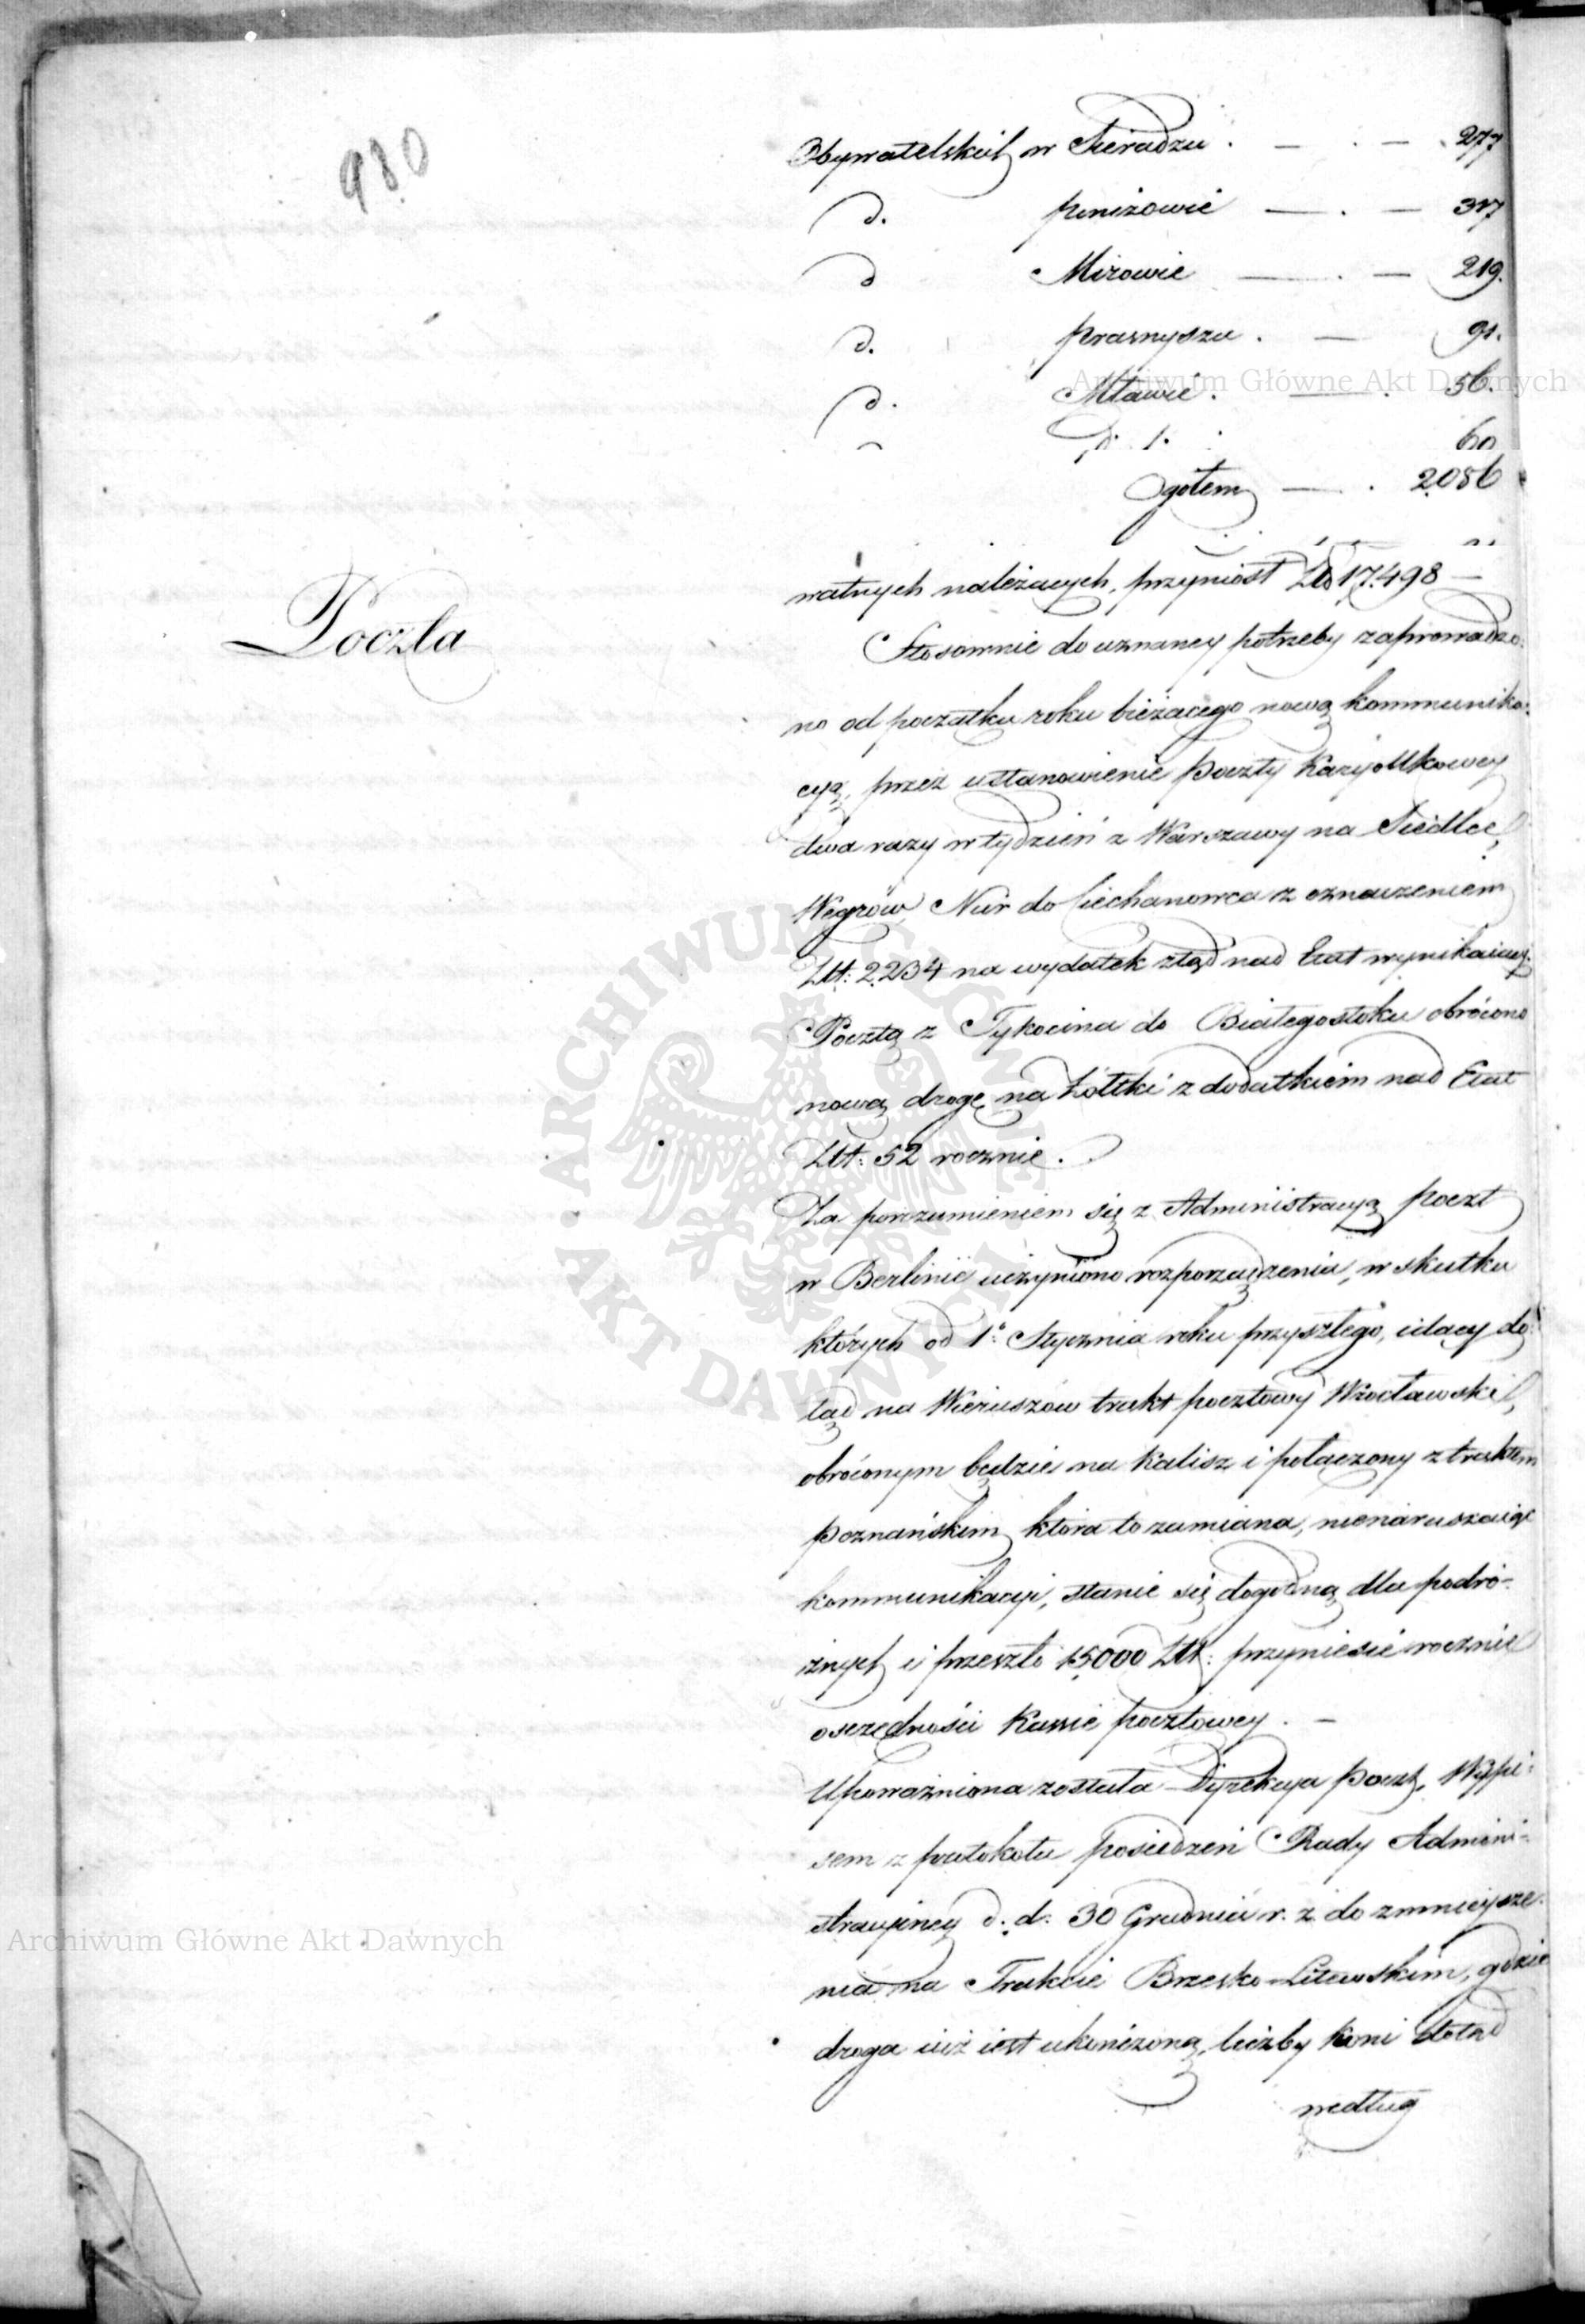 980
Obywatelskich w Sieradzu . — . — . 277
d. Koniżowie — . — 317
d Mirowie — . — 219.
d. Prasnyszu . — 91.
d. Mławie . — . 56.
60
Ogołem — . 2086
watnych należących, przyniosł Złt 17.498 —
Poczta
Stosownie do uznaney potrzeby zaprowadzo:
no od początku roku bieżącego nową kommunika:
cyą, przez ustanowienie Poczty Karyolkowey
dwa razy w tydzień z Warszawy na Siedlce,
Węgrow Nur do Ciechanowca z oznaczeniem
Złt: 2234 na wydatek ztąd nad Etat wynikaiący.
Pocztę z Tykocina do Białegostoku obrócono
nową drogę na Żołtki z dodatkiem nad Etat
Złt: 52 rocznie.
Za porozumieniem się z Administracyą poczt
w Berlinie uczyniono rozporządzenia, w skutku
których od 1o Stycznia roku przyszłego, idący do:
tąd na Wieruszów trakt pocztowy Wrocławski,
obróconym będzie na Kalisz i połączony z traktem
Poznańskim, która to zamiana, nienaruszaiąc
kommunikacyi, stanie się dogodną dla podró-
żnych i przeszło 15000 Złt: przyniesie rocznie
oszczędności Kassie pocztowey. —
Upoważniona została Dyrekcya Poczt, Wypi:
sem z protokołu posiedzeń Rady Admini-
stracyiney d. d. 30 Grudnia r. z. do zmnieysze-
nia na Trakcie Brzesko-Litewskim, gdzie
droga iuż iest ukończoną, liczby Koni dotąd
według
Archiwum Główne Akt Dawnych
Archiwum Główne Akt Dawnych
ARCHIWUM GŁÓWNE • AKT DAWNYCH •